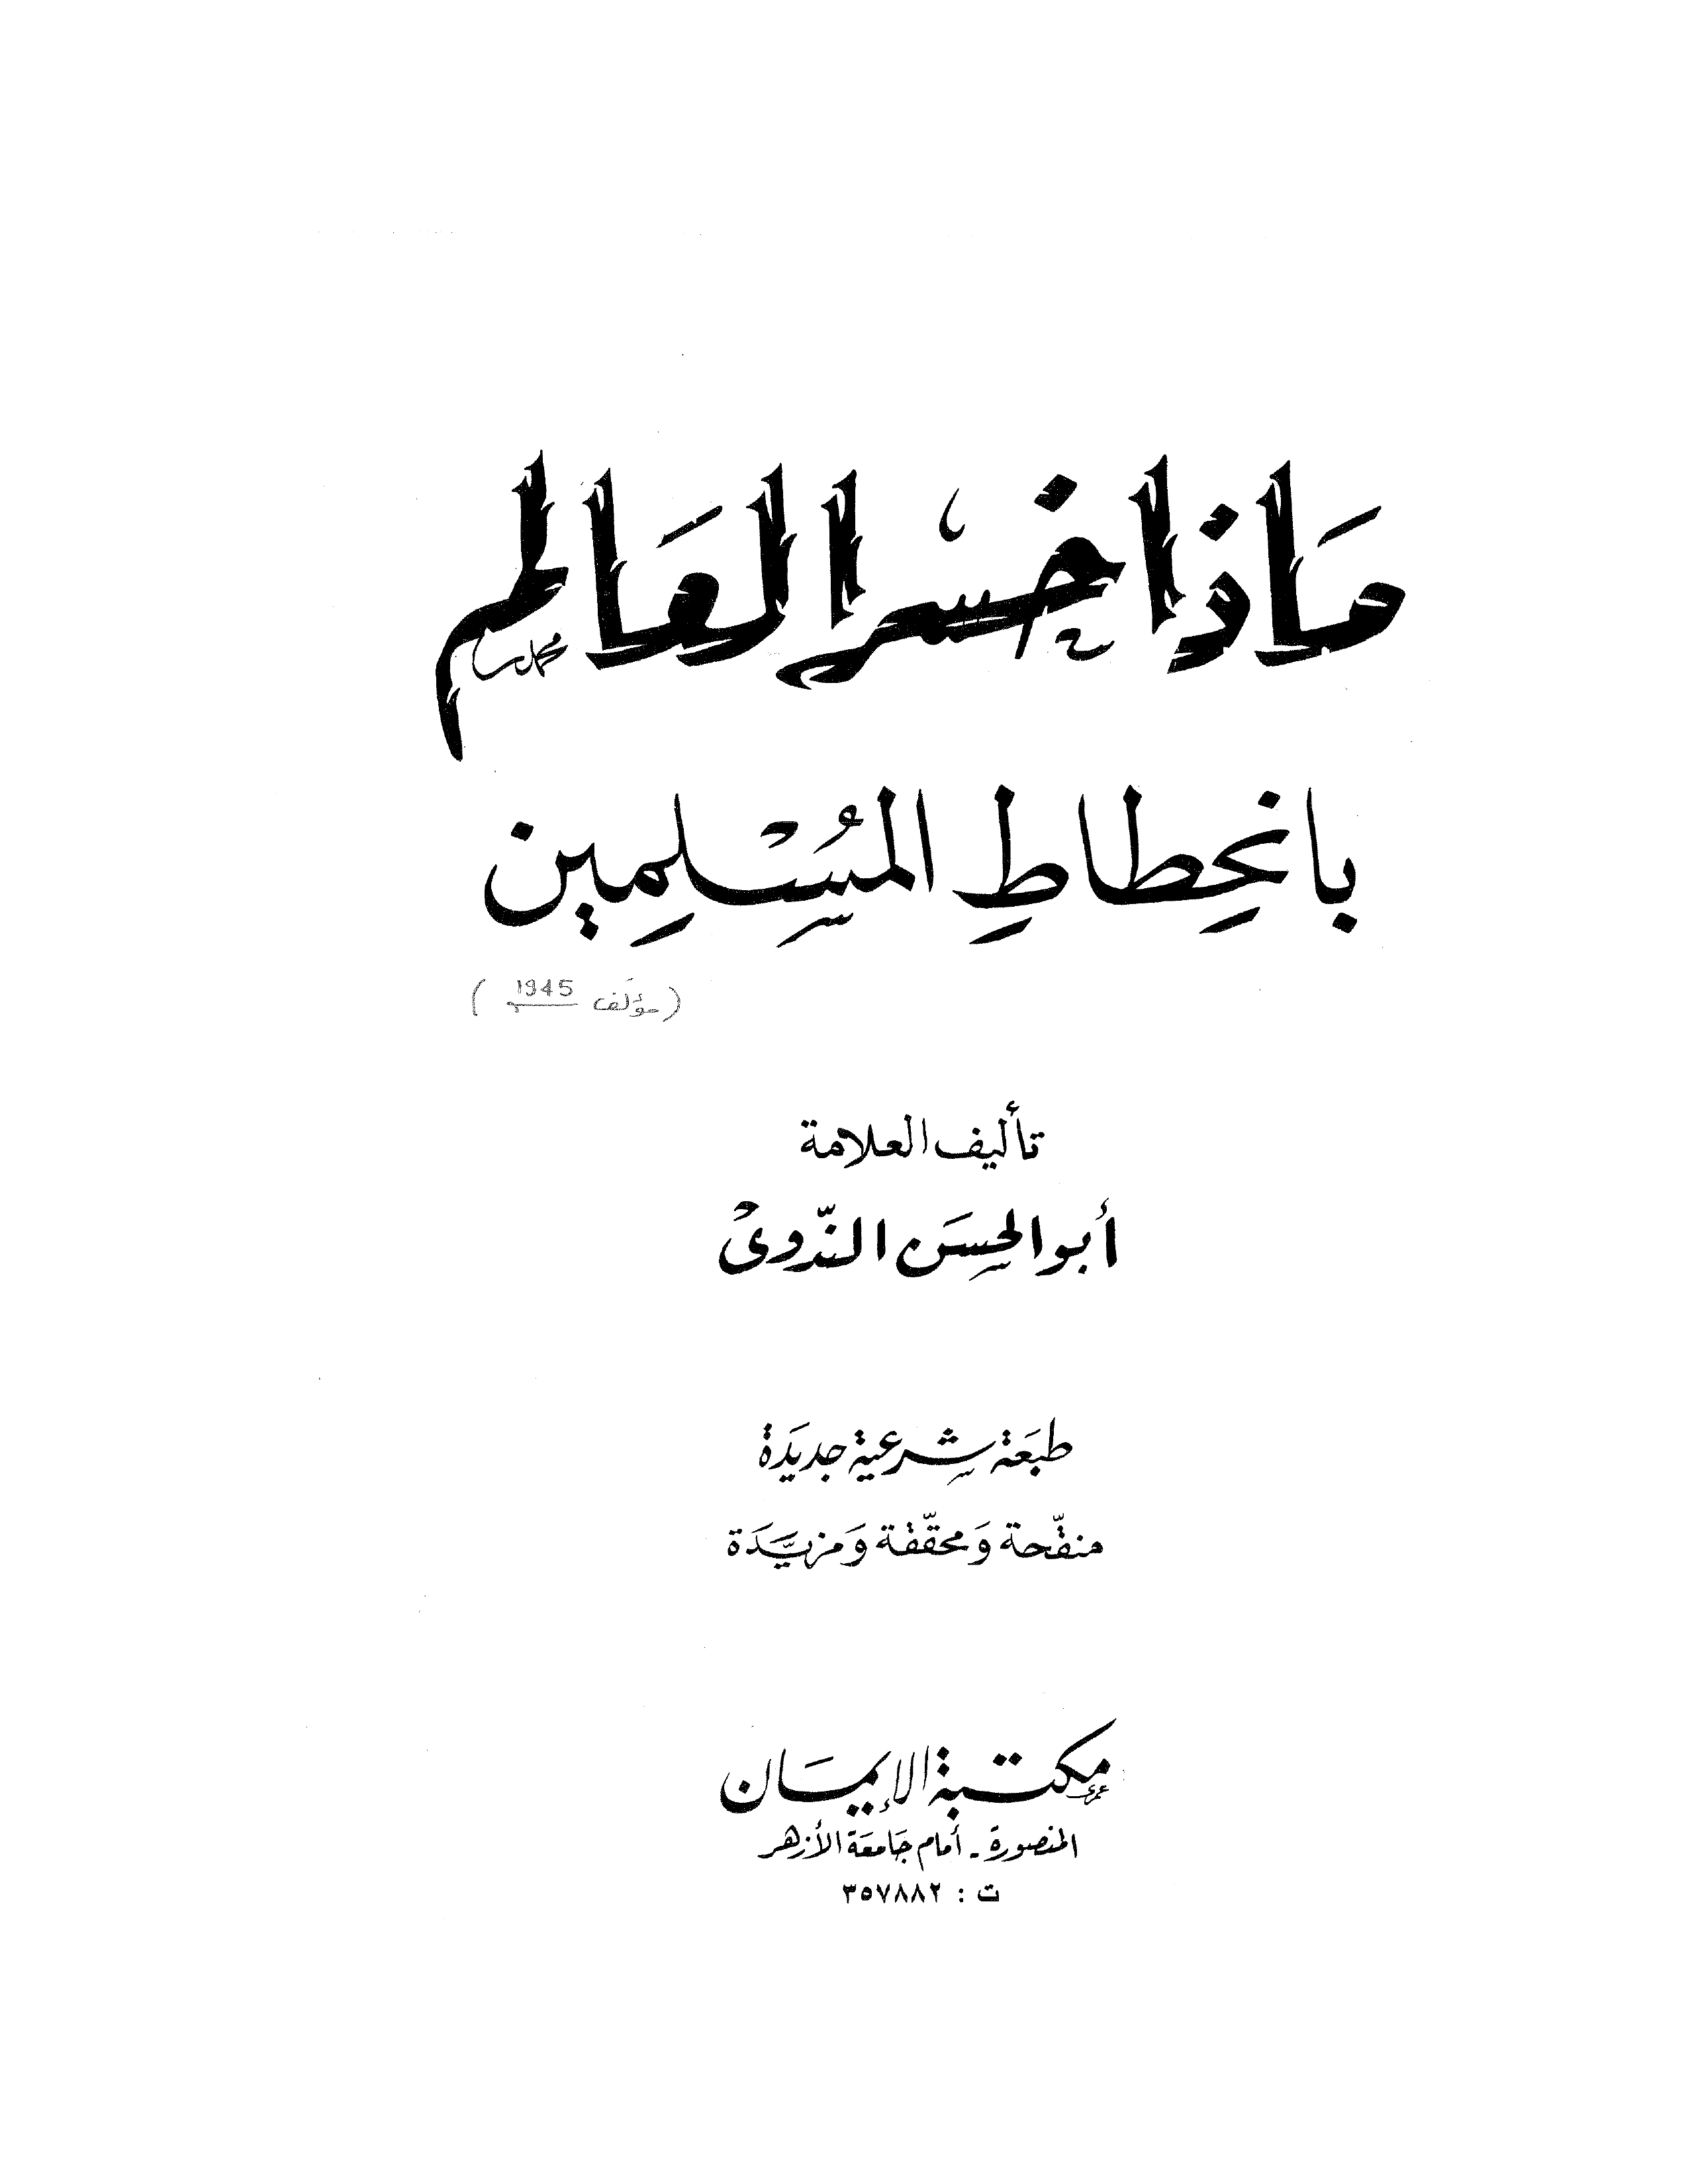 مَاذَا خَسِرَ العَالم
بانحِطاطِ المُسْلِمِين
(مؤلَف 1945)
تأليف العلامة
أبو الحسَن النّدوىْ
طبَعَة شرعية جديَدَة
منقّحة وَمحقّقة وَمزيَّدَة
مكتبة الإيمَان
المنصورة - أمام جَامعَة الأزهر
ت : ٣٥٧٨٨٢